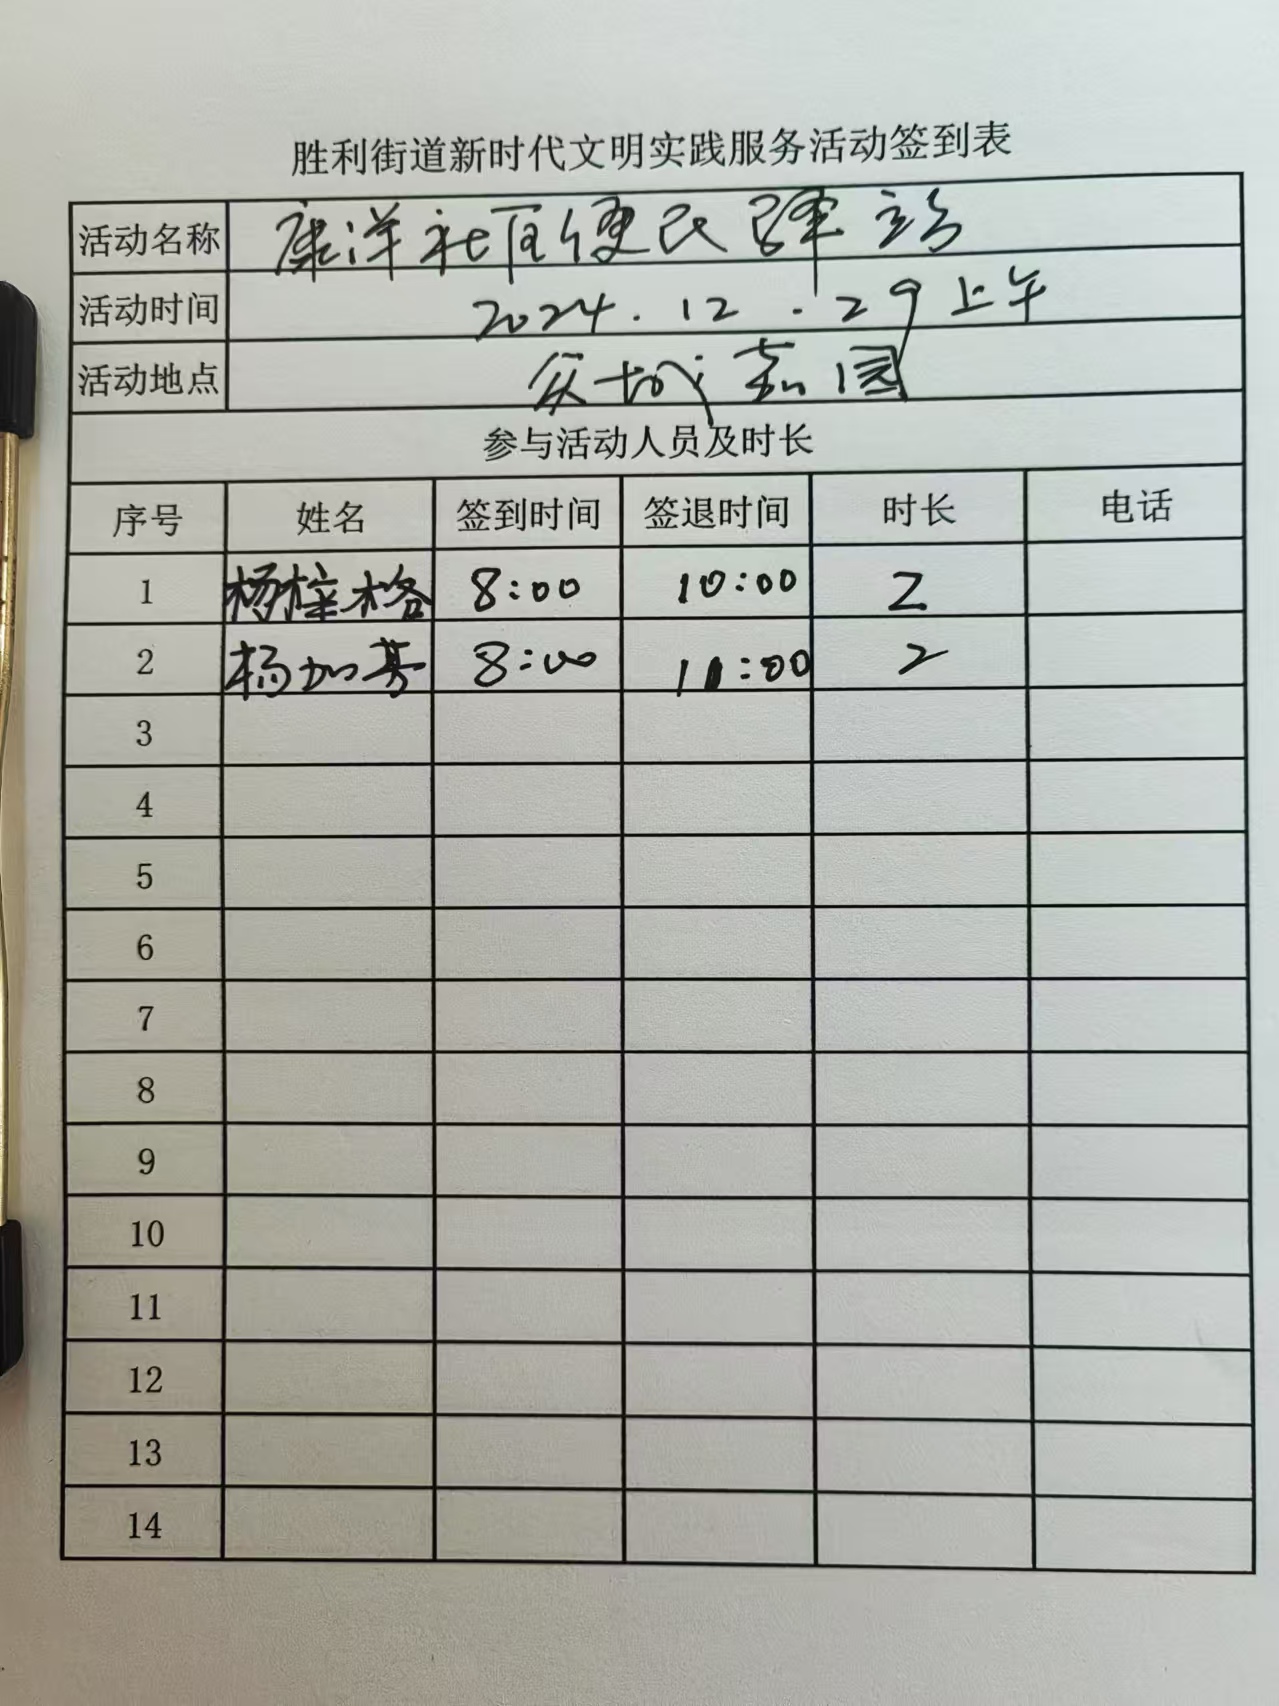 胜利街道新时代文明实践服务活动签到表
活动名称 康洋社区便民驿站
活动时间 2024.12.29上午
活动地点 众城嘉园
参与活动人员及时长
序号 姓名 签到时间 签退时间 时长 电话
1 杨梓格 8:00 10:00 2
2 杨加芳 8:00 10:00 2
3
4
5
6
7
8
9
10
11
12
13
14